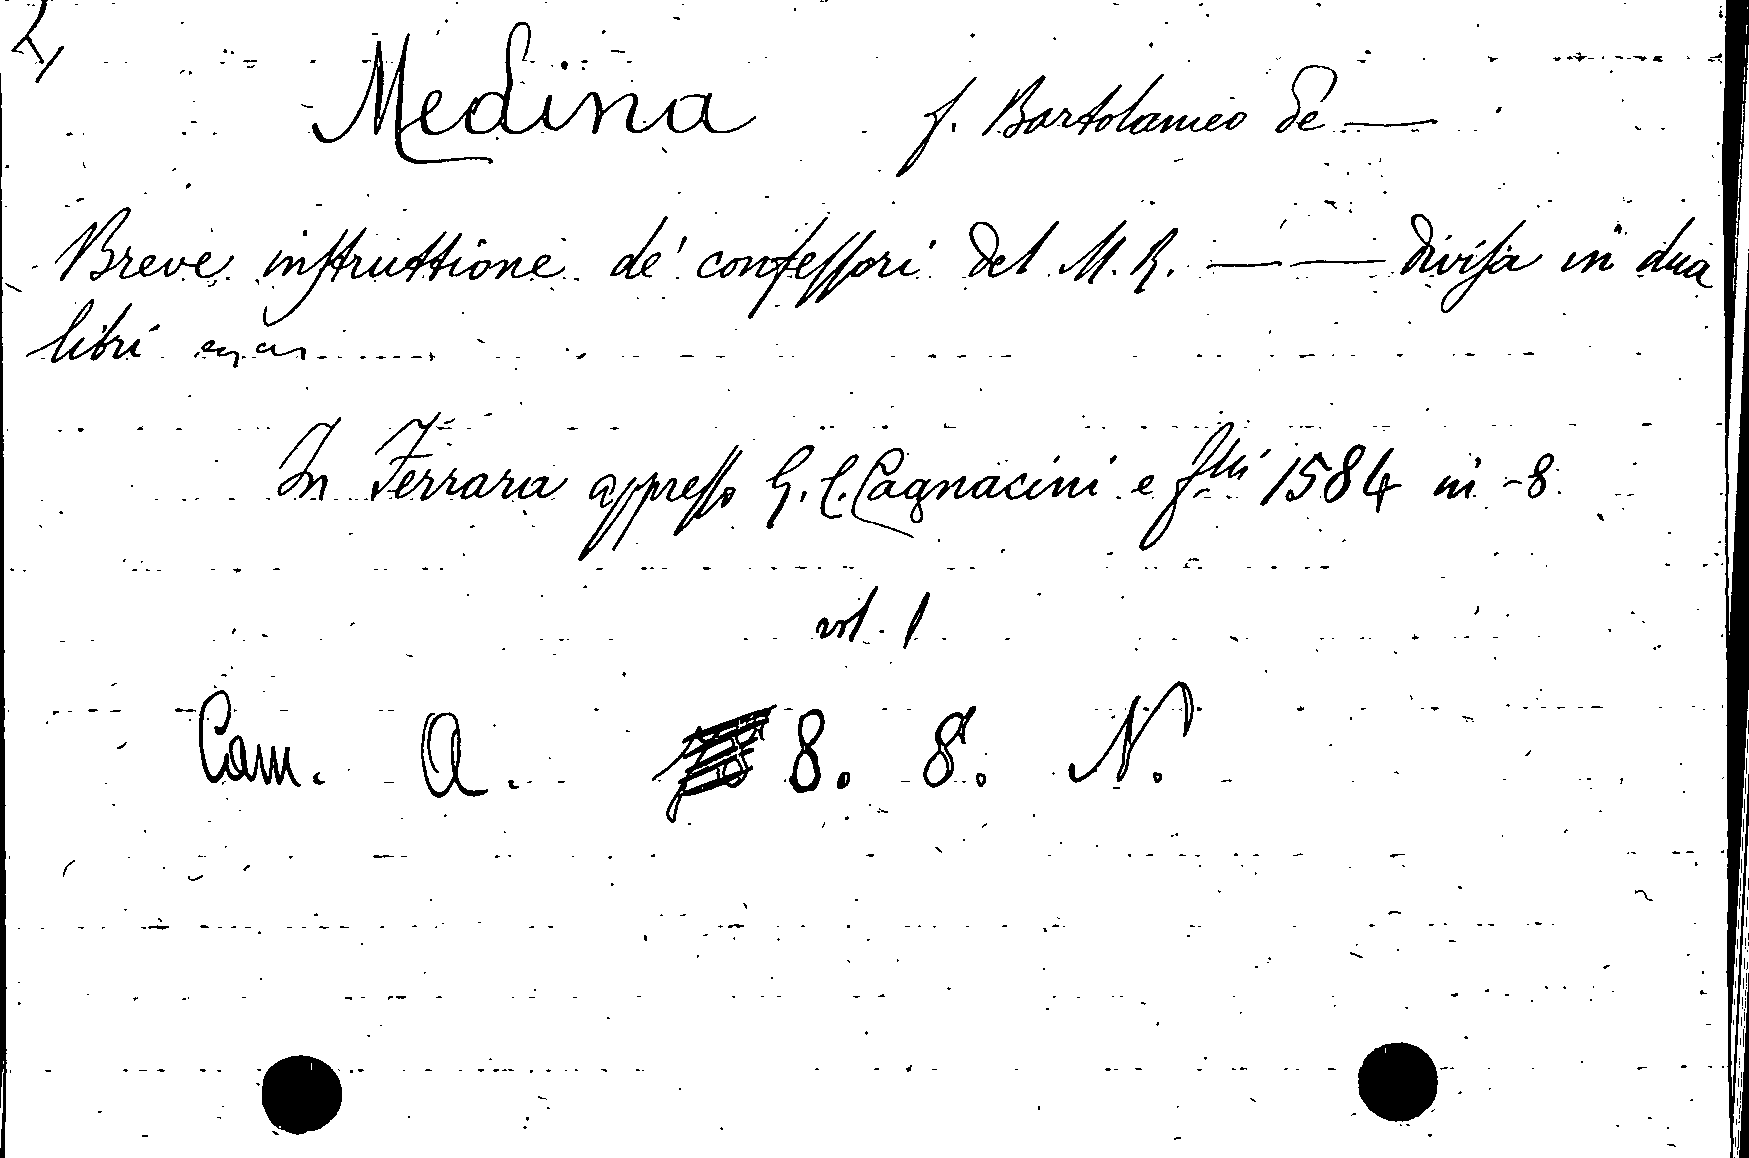 2,
Medina f. Bartolameo de —
Breve inſtruttione de' confeſſori del M. R. — — diviſa in dua
libri
In Ferrara appreſſo G. C. Cagnacini e f.lli 1584 in -8
vol. 1
Cam. A. 8. 8. N.